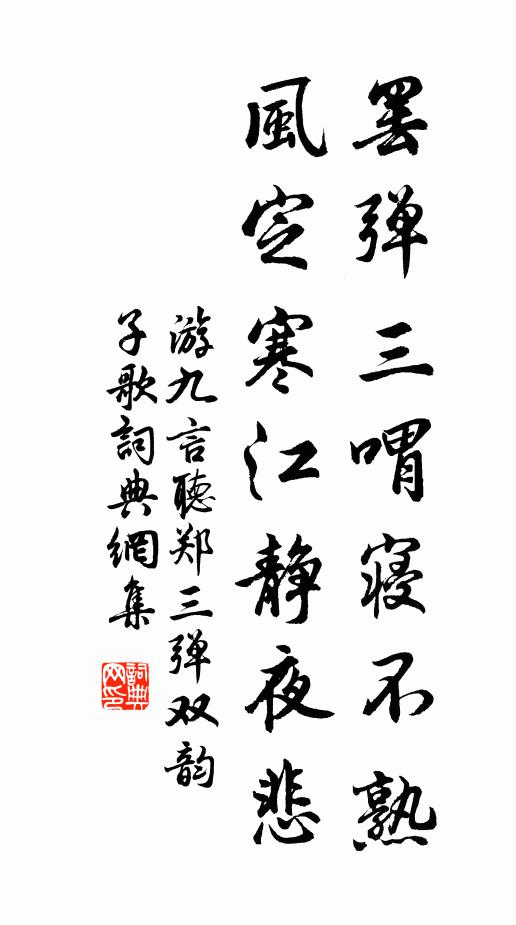 罢弹三喟寝不熟
風定寒江静夜悲
游九言聴郑三弹双韵
子歌詞典網集
詞典网印